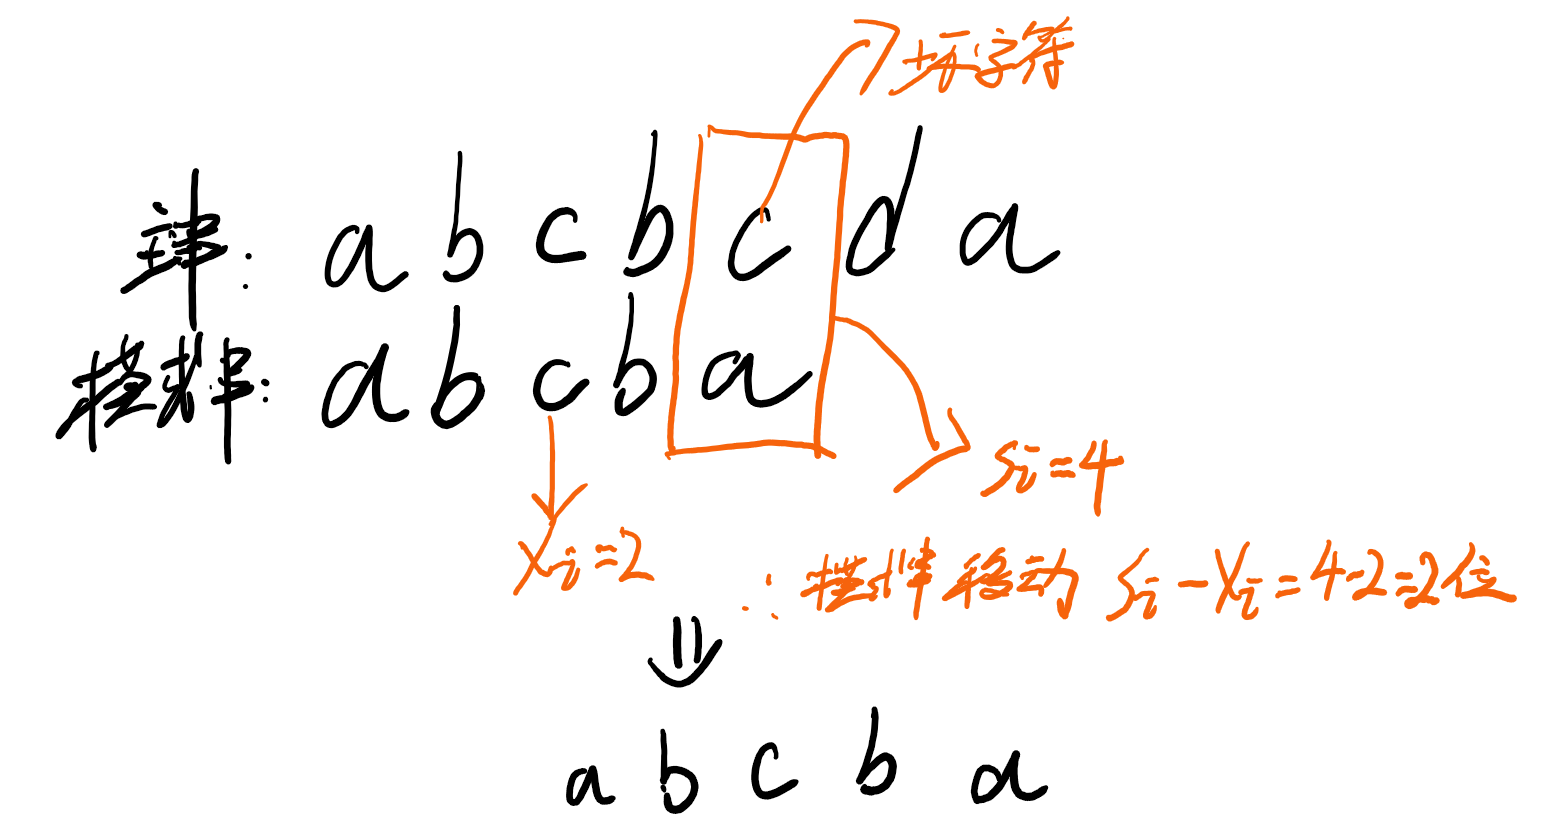 坏字符
主串: a b c b c d a
模式串: a b c b a
Si=4
Xi=2
∴ 模式串移动 Si-Xi=4-2=2位
a b c b a